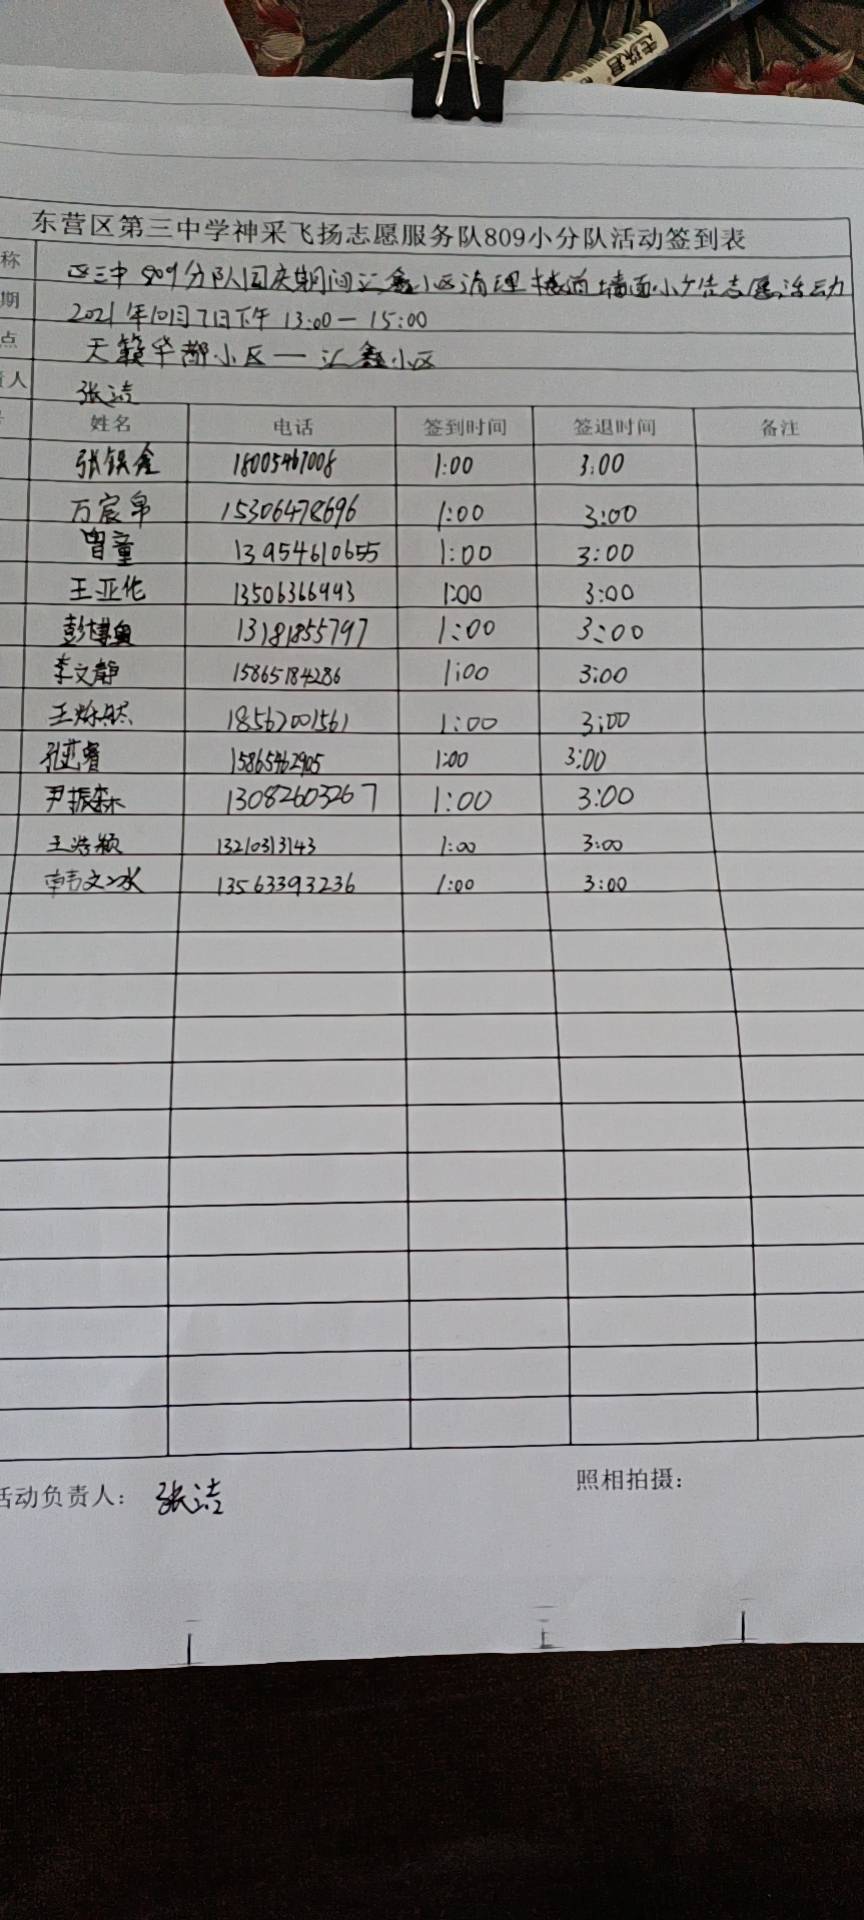 东营区第三中学神采飞扬志愿服务队809小分队活动签到表
称 区三中809分队国庆期间汇鑫小区清理楼道墙面小广告志愿活动
期 2021年10月7日下午 13:00—15:00
点 天籁华都小区—汇鑫小区
责人 张洁
姓名 电话 签到时间 签退时间 备注
张银鑫 18005467008 1:00 3:00
万宸帛 15306478696 1:00 3:00
曾童 13954610655 1:00 3:00
王亚伦 13506366993 1:00 3:00
彭博奥 13181855797 1:00 3:00
李文静 15865184286 1:00 3:00
王烁然 18562001561 1:00 3:00
孔艺睿 15865462905 1:00 3:00
尹振森 13082603267 1:00 3:00
王浩颖 13210313143 1:00 3:00
韩文冰 13563393236 1:00 3:00
活动负责人：张洁 照相拍摄：